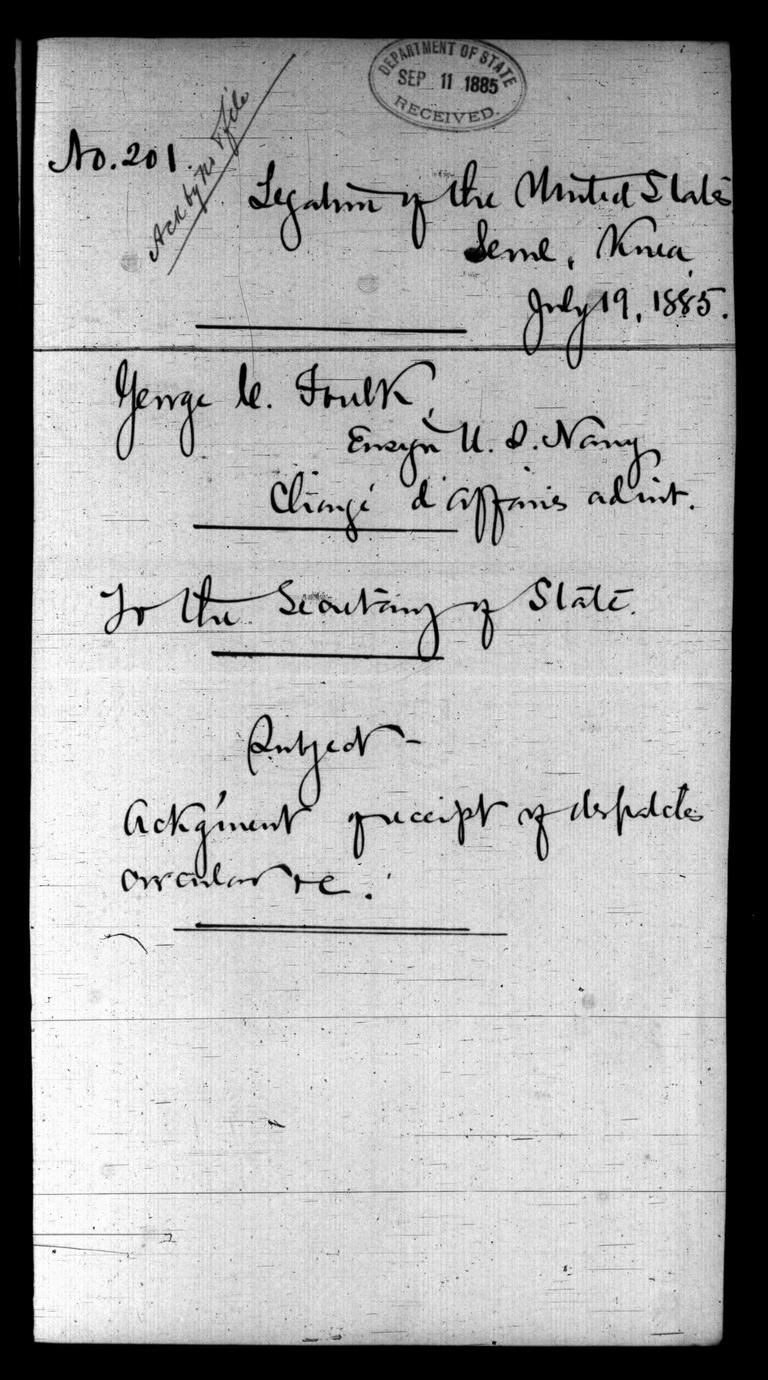 DEPARTMENT OF STATE
SEP 11 1885
RECEIVED.
No. 201.
Ack by file
Legation of the United States
Seoul, Korea
July 19, 1885.
George C. Foulk,
Ensign U. S. Navy
Chargé d'affaires ad int.
To the Secretary of State.
Subject-
Ackg'ment of receipt of despatches
circular &c.